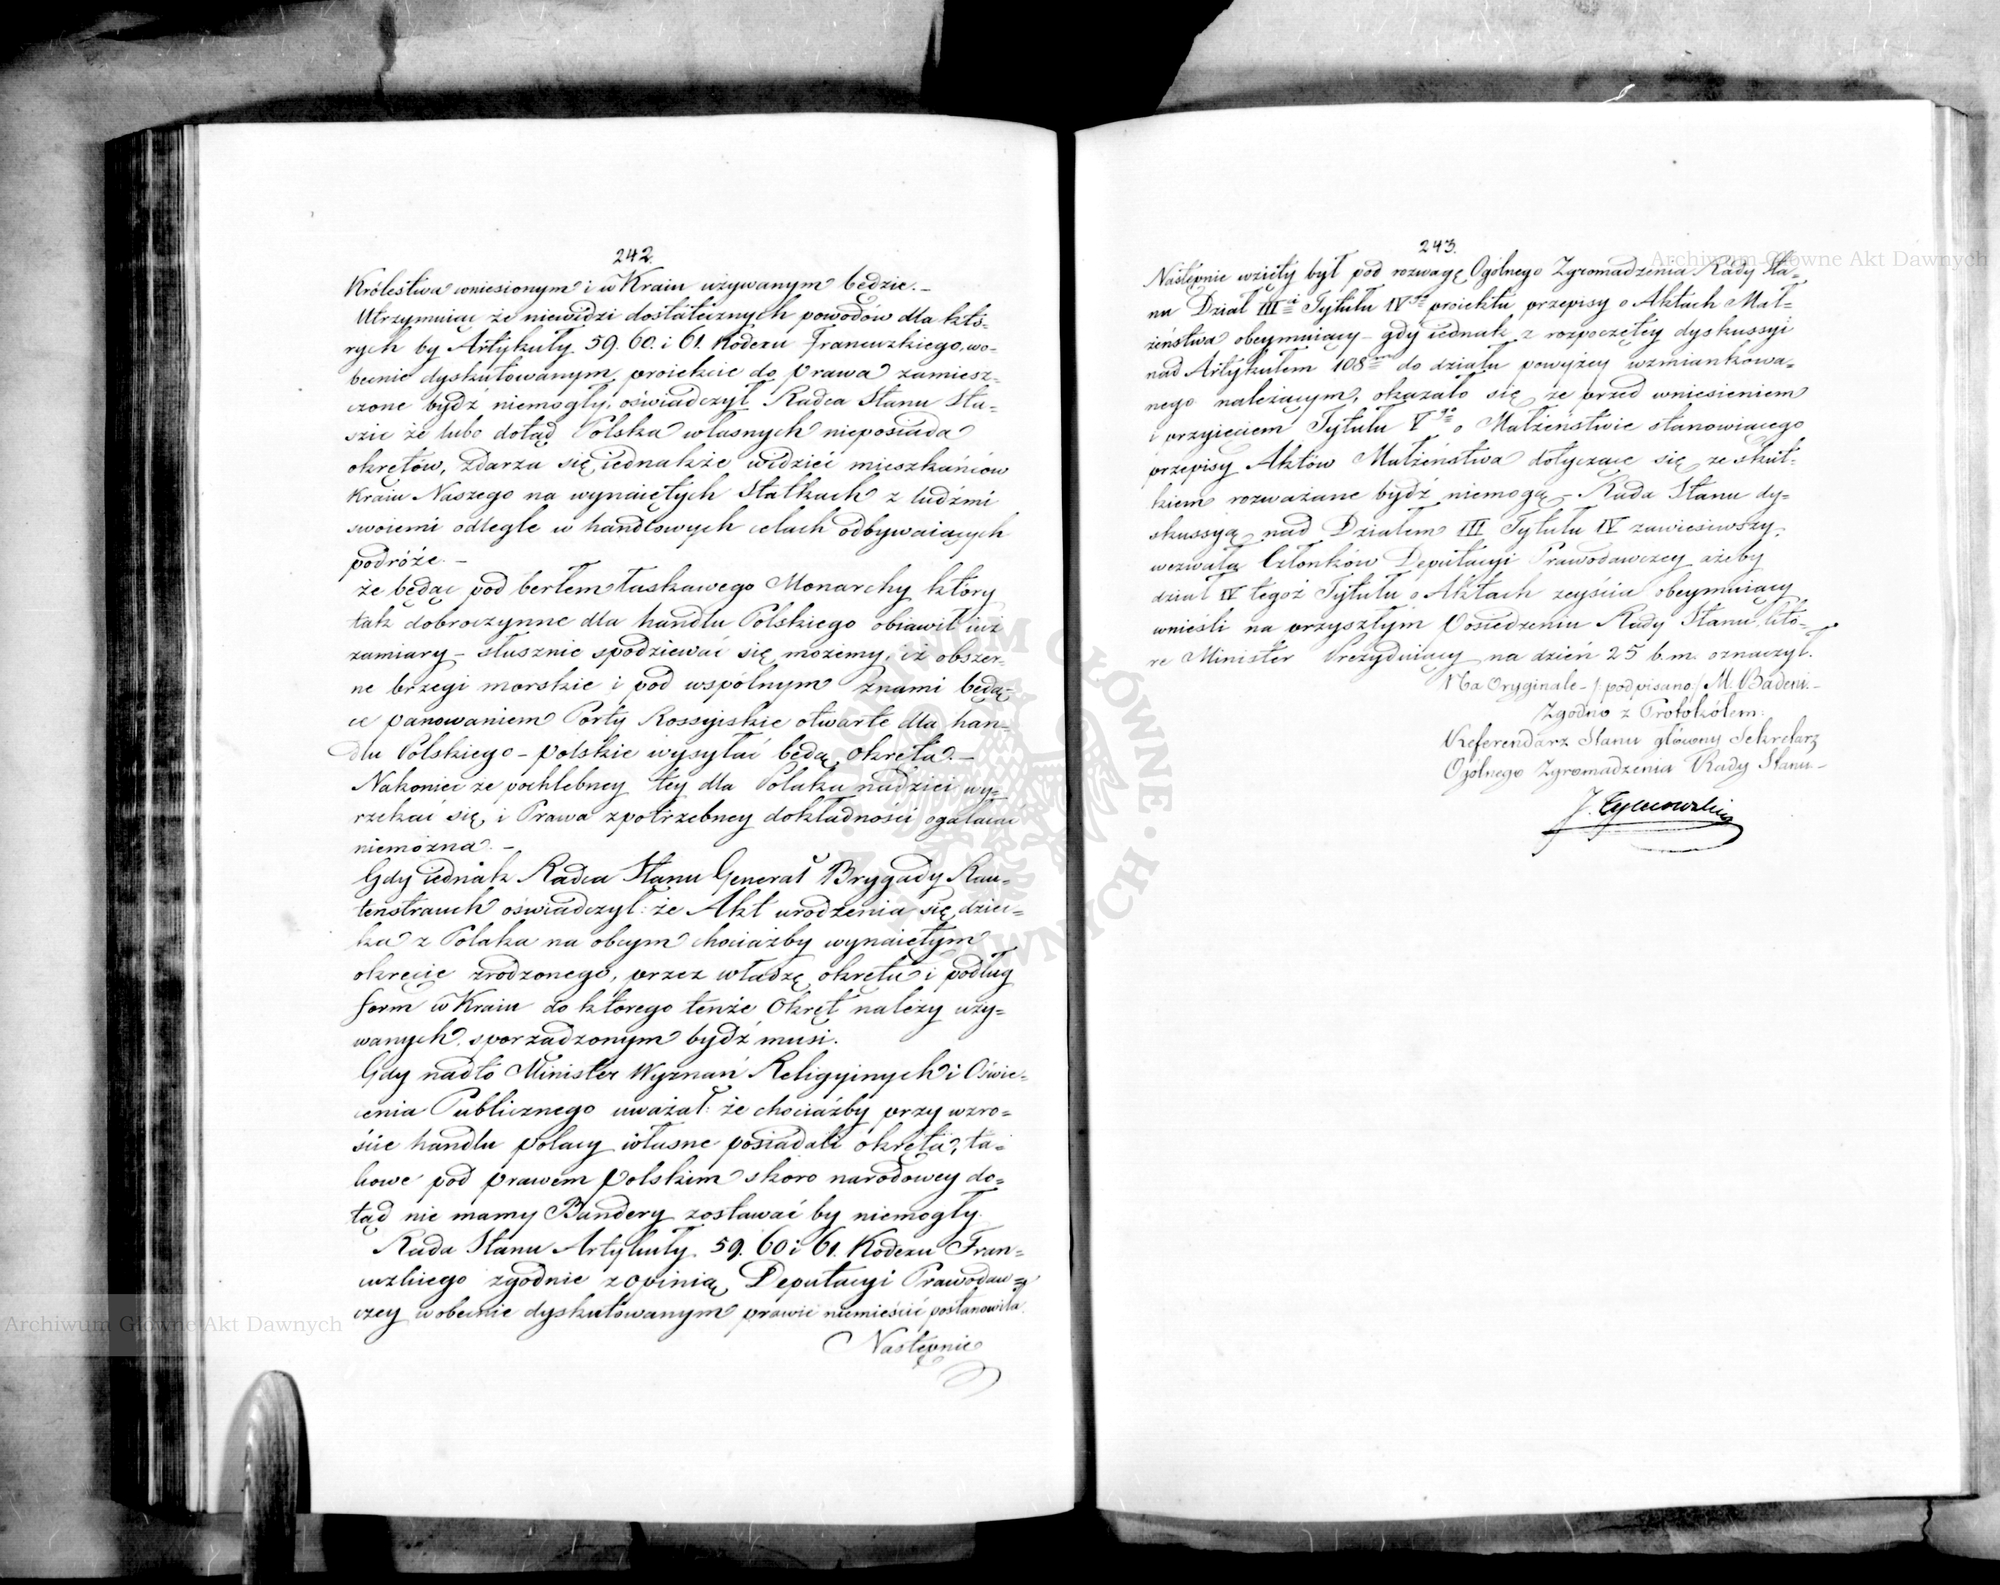 242.
Królestwa wniesionym i w Kraiu używanym będzie. –
Utrzymuiąc że niewidzi dostatecznych powodów dla któ=
rych by Artykuły 59. 60. i 61. Kodexu Francuzkiego, wo=
becnie dyskutowanym proiekcie do Prawa zamiesz=
czone bydź niemogły, oświadczył Radca Stanu Sta=
szic że lubo dotąd Polska własnych nieposiada
okrętów, zdarza się iednakże widzieć mieszkańców
Kraiu Naszego na wynaiętych Statkach z ludźmi
swoiemi odległe w handlowych celach odbywaiących
podróże. –
że będąc pod berłem łaskawego Monarchy który
tak dobroczynne dla handlu Polskiego obiawił iuż
zamiary – słusznie spodziewać się możemy, iż obszer=
ne brzegi morskie i pod wspólnym znami będą=
ce panowaniem Porty Rossyiskie otwarte dla han=
dlu Polskiego – polskie wysyłać będą okręta. –
Nakoniec że pochlebney tey dla Polaka nadziei wy=
rzekać się, i Prawa zpotrzebney dokładności ogałacać
niemożna. –
Gdy iednak Radca Stanu Generał Brygady Rau=
tenstrauch oświadczył: że Akt urodzenia się dziec=
ka z Polaka na obcym chociażby wynaiętym
okręcie zrodzonego, przez władzę okrętu i podług
form w Kraiu do którego tenże Okręt należy uży=
wanych sporządzonym bydź musi.
Gdy nadto Minister Wyznań Religyinych i Oświe=
cenia Publicznego uważał: że chociażby przy wzro=
ście handlu polacy własne posiadali okręta, ta=
kowe pod prawem polskim skoro narodowey do=
tąd nie mamy Bandery zostawać by niemogły.
Rada Stanu Artykuły 59. 60 i 61. Kodexu Fran=
cuzkiego zgodnie z opinią Deputacyi Prawodaw=
czey w obecnie dyskutowanym prawie niemieścić postanowiła.
Następnie
243.
Następnie wzięty był pod rozwagę Ogólnego Zgromadzenia Rady Sta=
nu Dział III<sup>ci</sup> Tytułu IV<sup>go</sup> proiektu przepisy o Aktach Mał=
żeństwa obeymuiący – gdy iednak z rozpoczętey dyskussyi
nad Artykułem 108<sup>m</sup> do działu powyżey wzmiankowa=
nego należącym, okazało się że przed wniesieniem
i przyięciem Tytułu V<sup>go</sup> o Małżeństwie stanowiącego
przepisy Aktów Małżeństwa dotyczące się ze skut=
kiem rozważane bydź niemogą – Rada Stanu dy=
skussyą nad Działem III Tytułu IV zawiesiwszy,
wezwała Członków Deputacyi Prawodawczey ażeby
dział IV tegoż Tytułu o Aktach zeyścia obeymuiący
wnieśli na przyszłym Posiedzeniu Rady Stanu któ=
re Minister Prezyduiący na dzień 25 b. m. oznaczył.
Na Oryginale – /: podpisano:/ M. Badeni. –
Zgodno z Protokółem:
Referendarz Stanu główny Sekretarz
Ogólnego Zgromadzenia Rady Stanu –
J. Tymowski
Archiwum Główne Akt Dawnych
Archiwum Główne Akt Dawnych